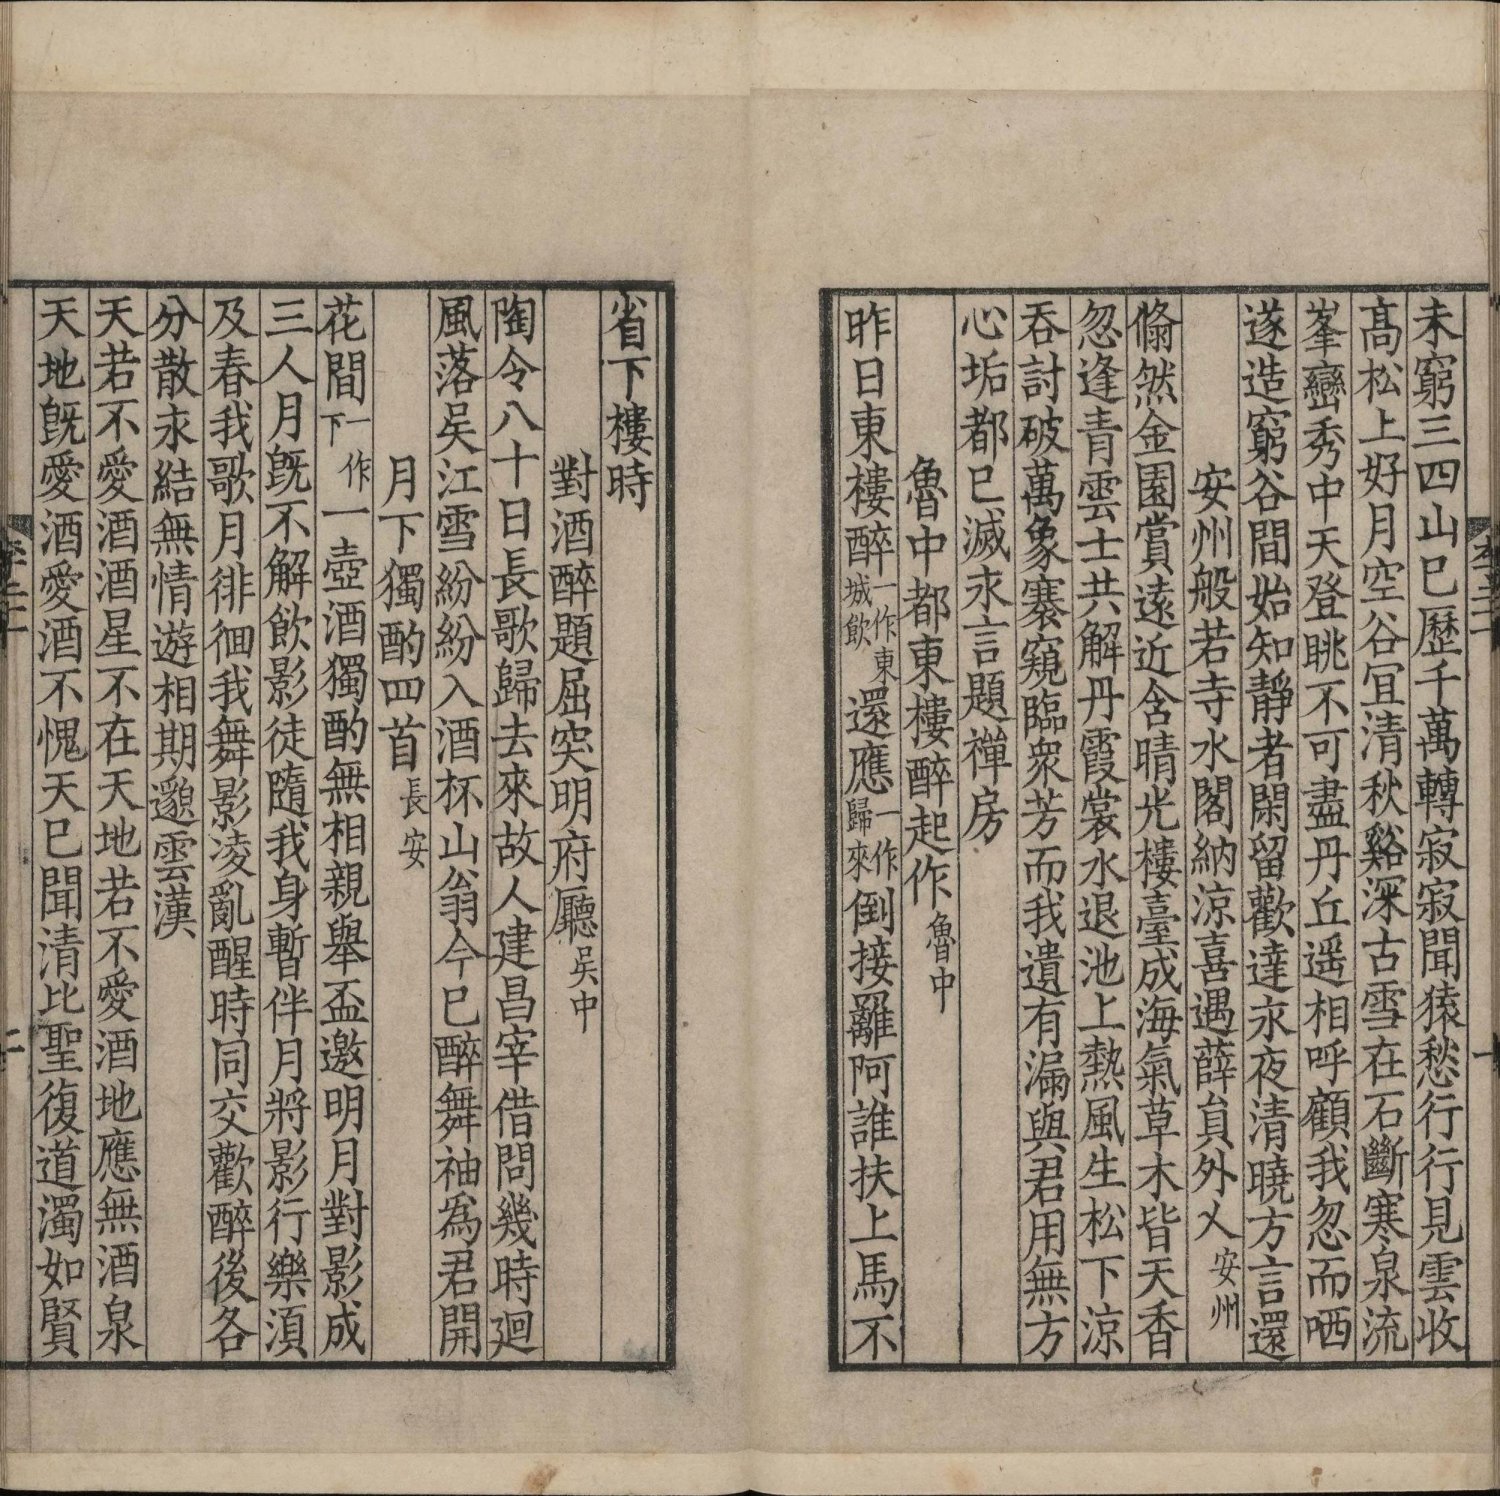 未窮三四山已歷千萬轉寂寂聞猿愁行行見雲收
髙松上好月空谷冝清秋谿深古雪在石斷寒泉流
峯巒秀中天登眺不可盡丹丘遥相呼顧我忽而哂
遂造窮谷間始知靜者閑留歡達永夜清曉方言還
安州般若寺水閣納涼喜遇薛貟外乂安州
翛然金園賞遠近含晴光樓臺成海氣草木皆天香
忽逢青雲士共解丹霞裳水退池上熱風生松下涼
吞討破萬象褰窺臨衆芳而我遺有漏與君用無方
心垢都已滅永言題禪房
魯中都東樓醉起作魯中
昨日東樓醉一作東城飲還應一作歸來倒接䍦阿誰扶上馬不
省下樓時
對酒醉題屈突明府廳吴中
陶令八十日長歌歸去來故人建昌宰借問幾時迴
風落吴江雪紛紛入酒杯山翁今已醉舞袖爲君開
月下獨酌四首長安
花間一作下一壺酒獨酌無相親舉盃邀明月對影成
三人月既不解飲影徒隨我身暫伴月將影行樂須
及春我歌月徘徊我舞影凌亂醒時同交歡醉後各
分散永結無情遊相期邈雲漢
天若不愛酒酒星不在天地若不愛酒地應無酒泉
天地既愛酒愛酒不愧天已聞清比聖復道濁如賢